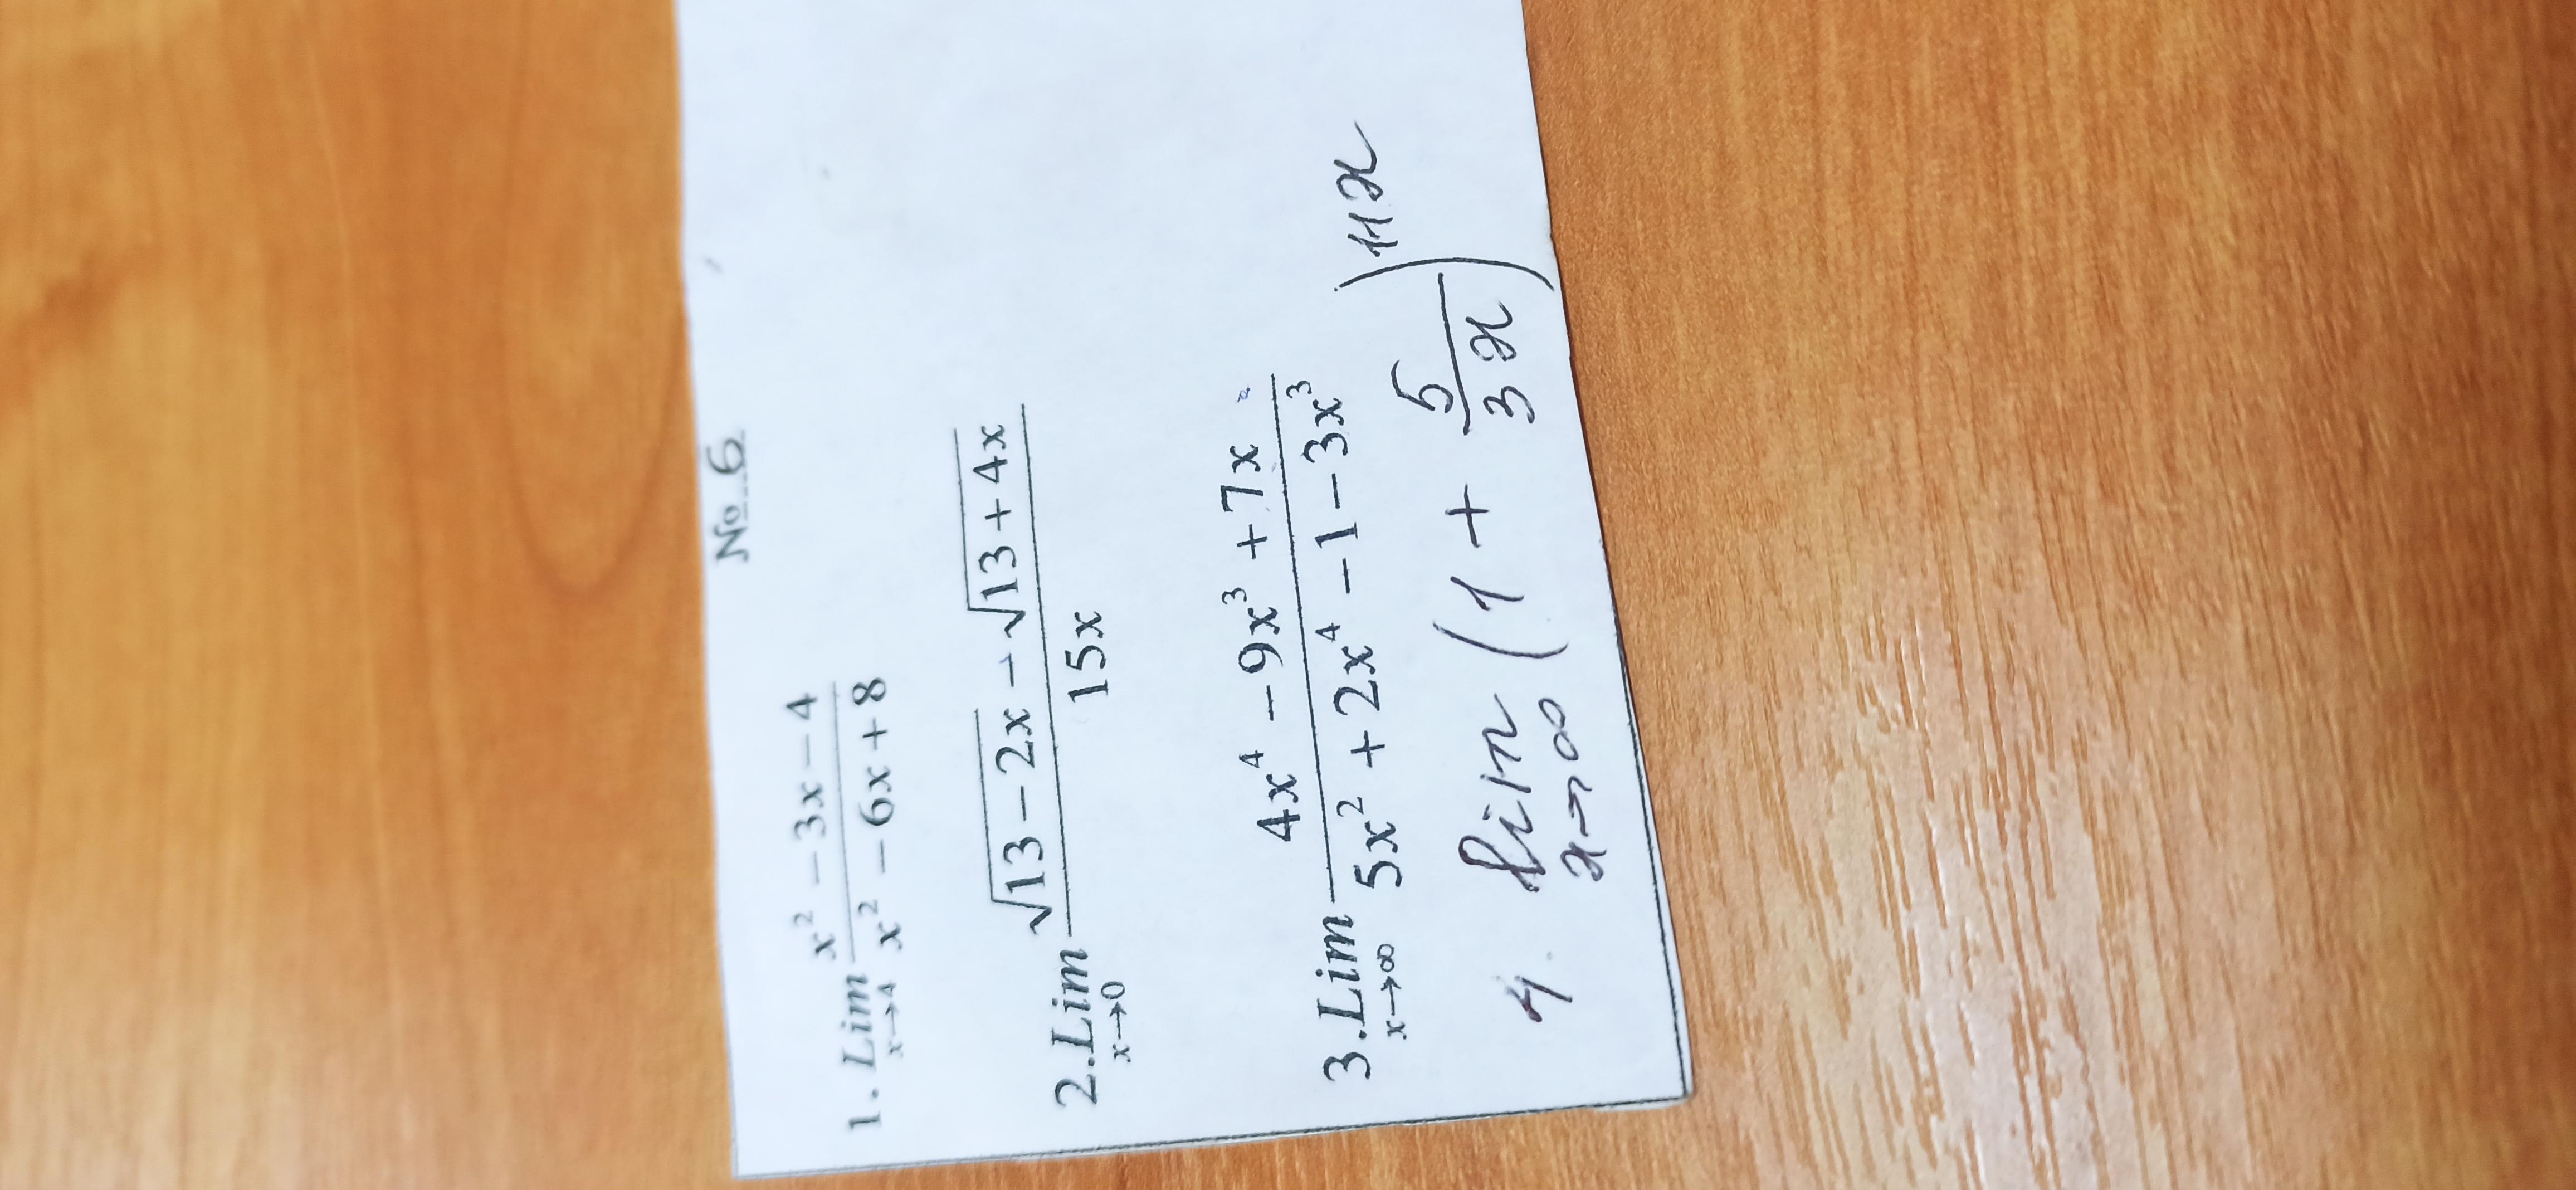 № 6
1. Lim x→4 (x² − 3x − 4)/(x² − 6x + 8)
2. Lim x→0 (√(13 − 2x) − √(13 + 4x))/(15x)
3. Lim x→∞ (4x⁴ − 9x³ + 7x)/(5x² + 2x⁴ − 1 − 3x³)
4. lim x→∞ (1 + 5/(3x))^(11x)